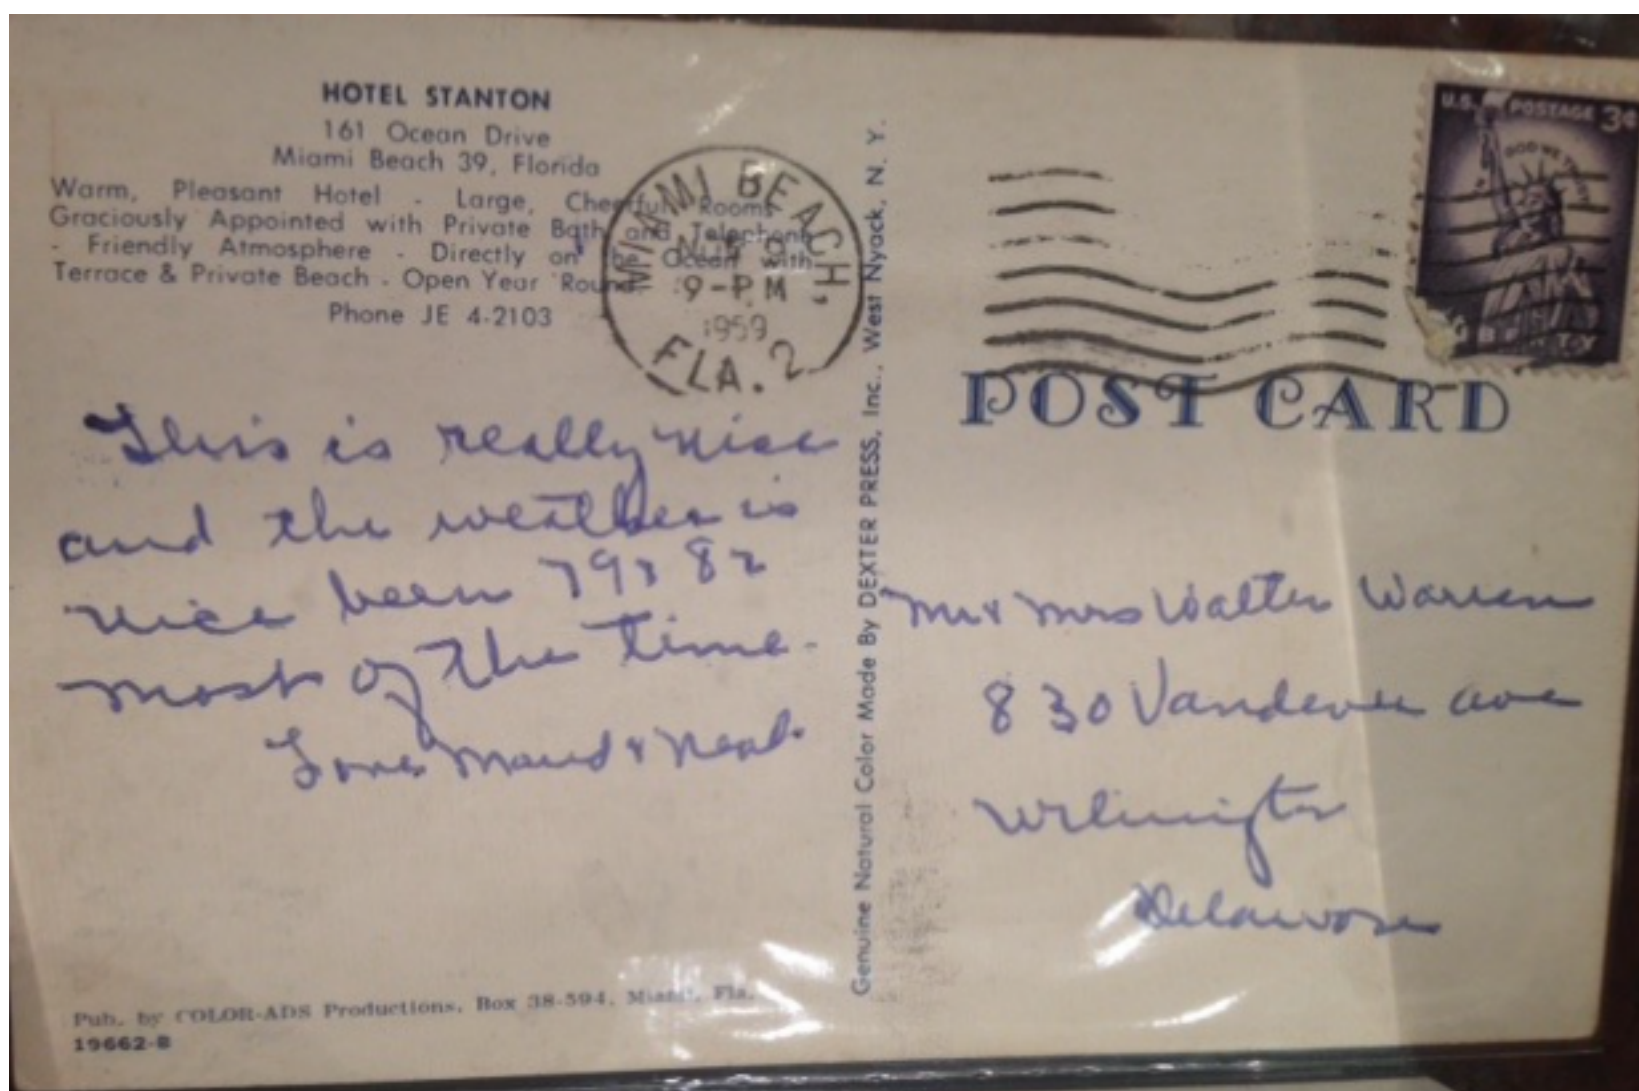 HOTEL STANTON
161 Ocean Drive
Miami Beach 39, Florida
Warm, Pleasant Hotel - Large, Cheerful Rooms
Graciously Appointed with Private Bath and Telephone
- Friendly Atmosphere - Directly on the Ocean with
Terrace & Private Beach - Open Year 'Round.
Phone JE 4-2103
MIAMI BEACH,
9-PM
1959
FLA. 2
This is really nice
and the weather is
nice been 79 & 82
most of the time.
Love Maud & Neal.
Pub. by COLOR-ADS Productions, Box 38-594, Miami, Fla.
19662-B
Genuine Natural Color Made By DEXTER PRESS, Inc., West Nyack, N. Y.
U.S. POSTAGE 3¢
GOD WE TRUST
POST CARD
Mr & Mrs Walter Warren
830 Vandever ave
Wilmington
Delaware